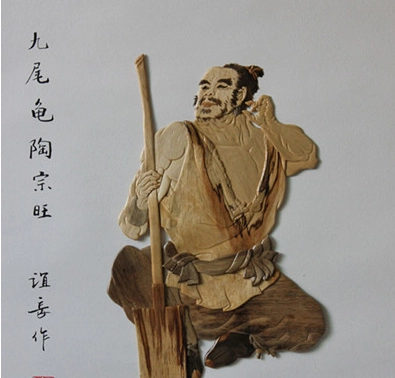 九尾龟陶宗旺
谊岳作